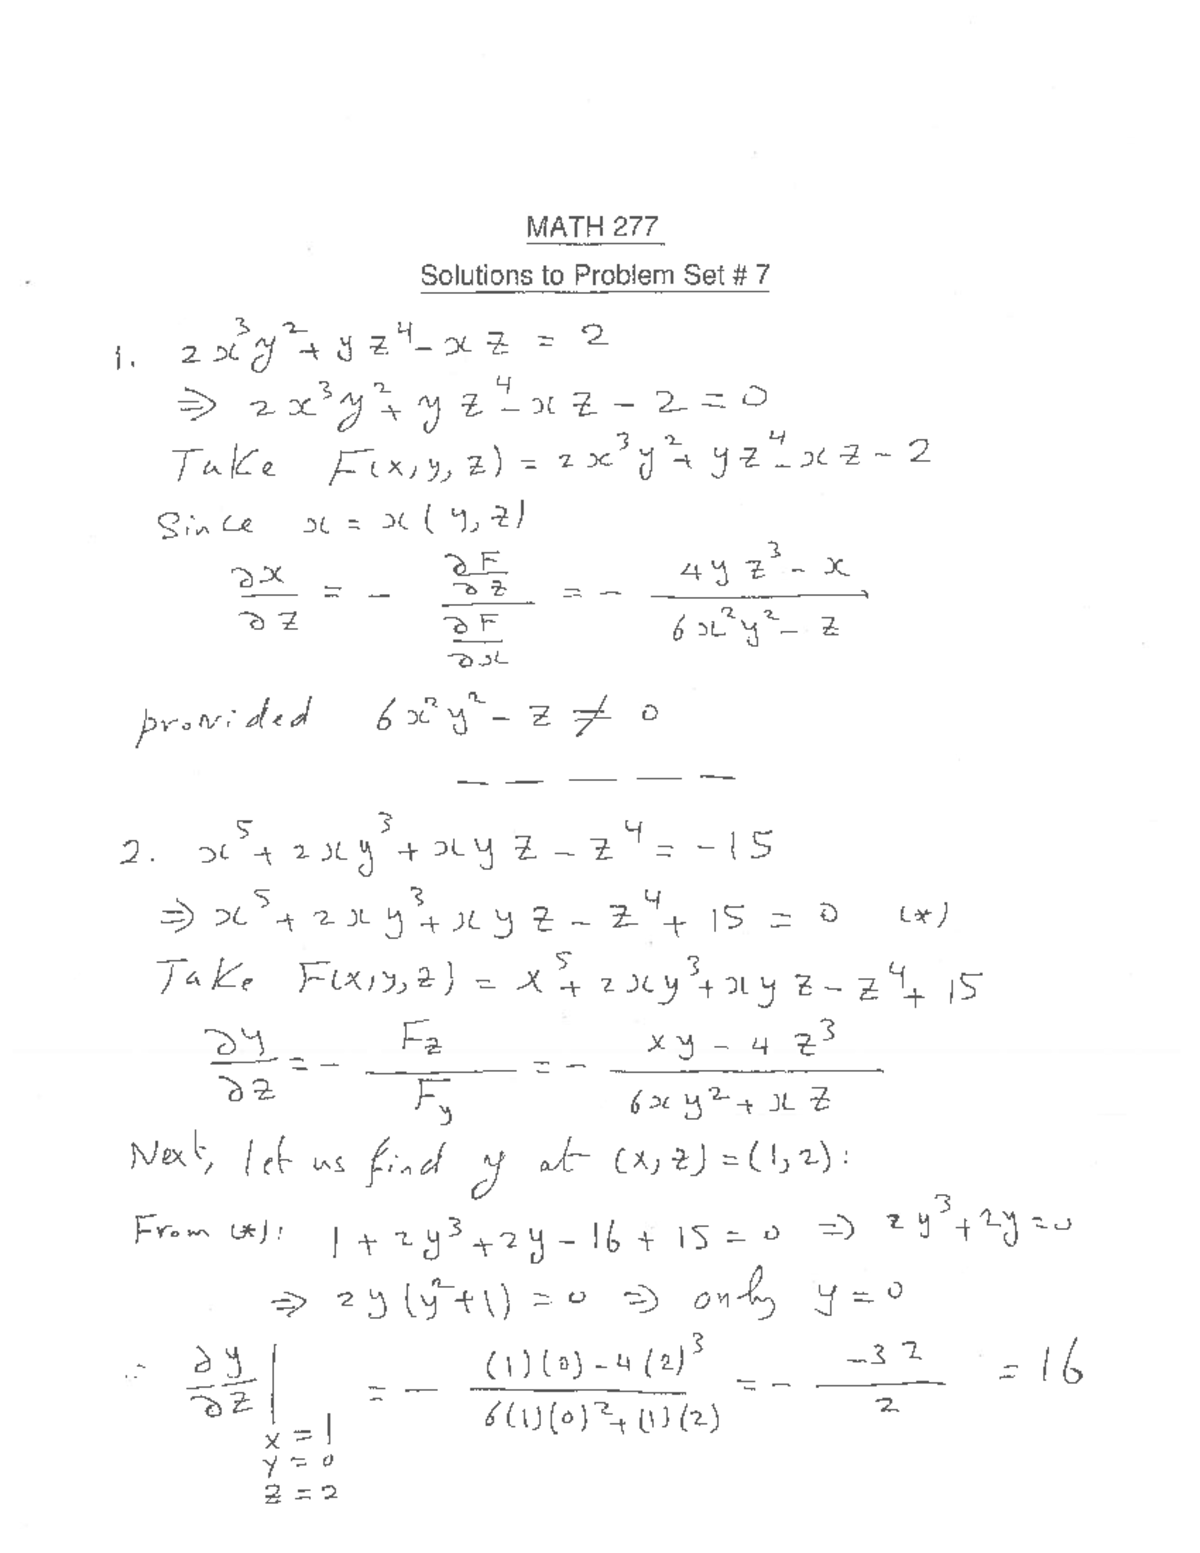 MATH 277
Solutions to Problem Set # 7
1. 2x³y² + yz⁴ - xz = 2
⇒ 2x³y² + yz⁴ - xz - 2 = 0
Take F(x, y, z) = 2x³y² + yz⁴ - xz - 2
Since x = x(y, z)
∂x/∂z = - (∂F/∂z)/(∂F/∂x) = - (4yz³ - x)/(6x²y² - z)
provided 6x²y² - z ≠ 0
— — — — —
2. x⁵ + 2xy³ + xyz - z⁴ = -15
⇒ x⁵ + 2xy³ + xyz - z⁴ + 15 = 0 (*)
Take F(x, y, z) = x⁵ + 2xy³ + xyz - z⁴ + 15
∂y/∂z = - F_z/F_y = - (xy - 4z³)/(6xy² + xz)
Next, let us find y at (x, z) = (1, 2):
From (*): 1 + 2y³ + 2y - 16 + 15 = 0 ⇒ 2y³ + 2y = 0
⇒ 2y(y² + 1) = 0 ⇒ only y = 0
∴ ∂y/∂z | x = 1 y = 0 z = 2 = - ((1)(0) - 4(2)³)/(6(1)(0)² + (1)(2)) = - (-32)/2 = 16